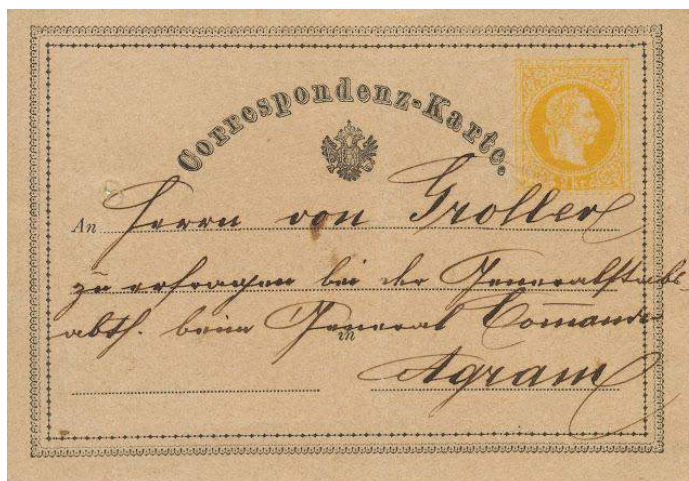 Correspondenz-Karte.
An Herrn von Groller
zu erfragen bei der Generalstabs-
abth. beim General Commando
in
Agram